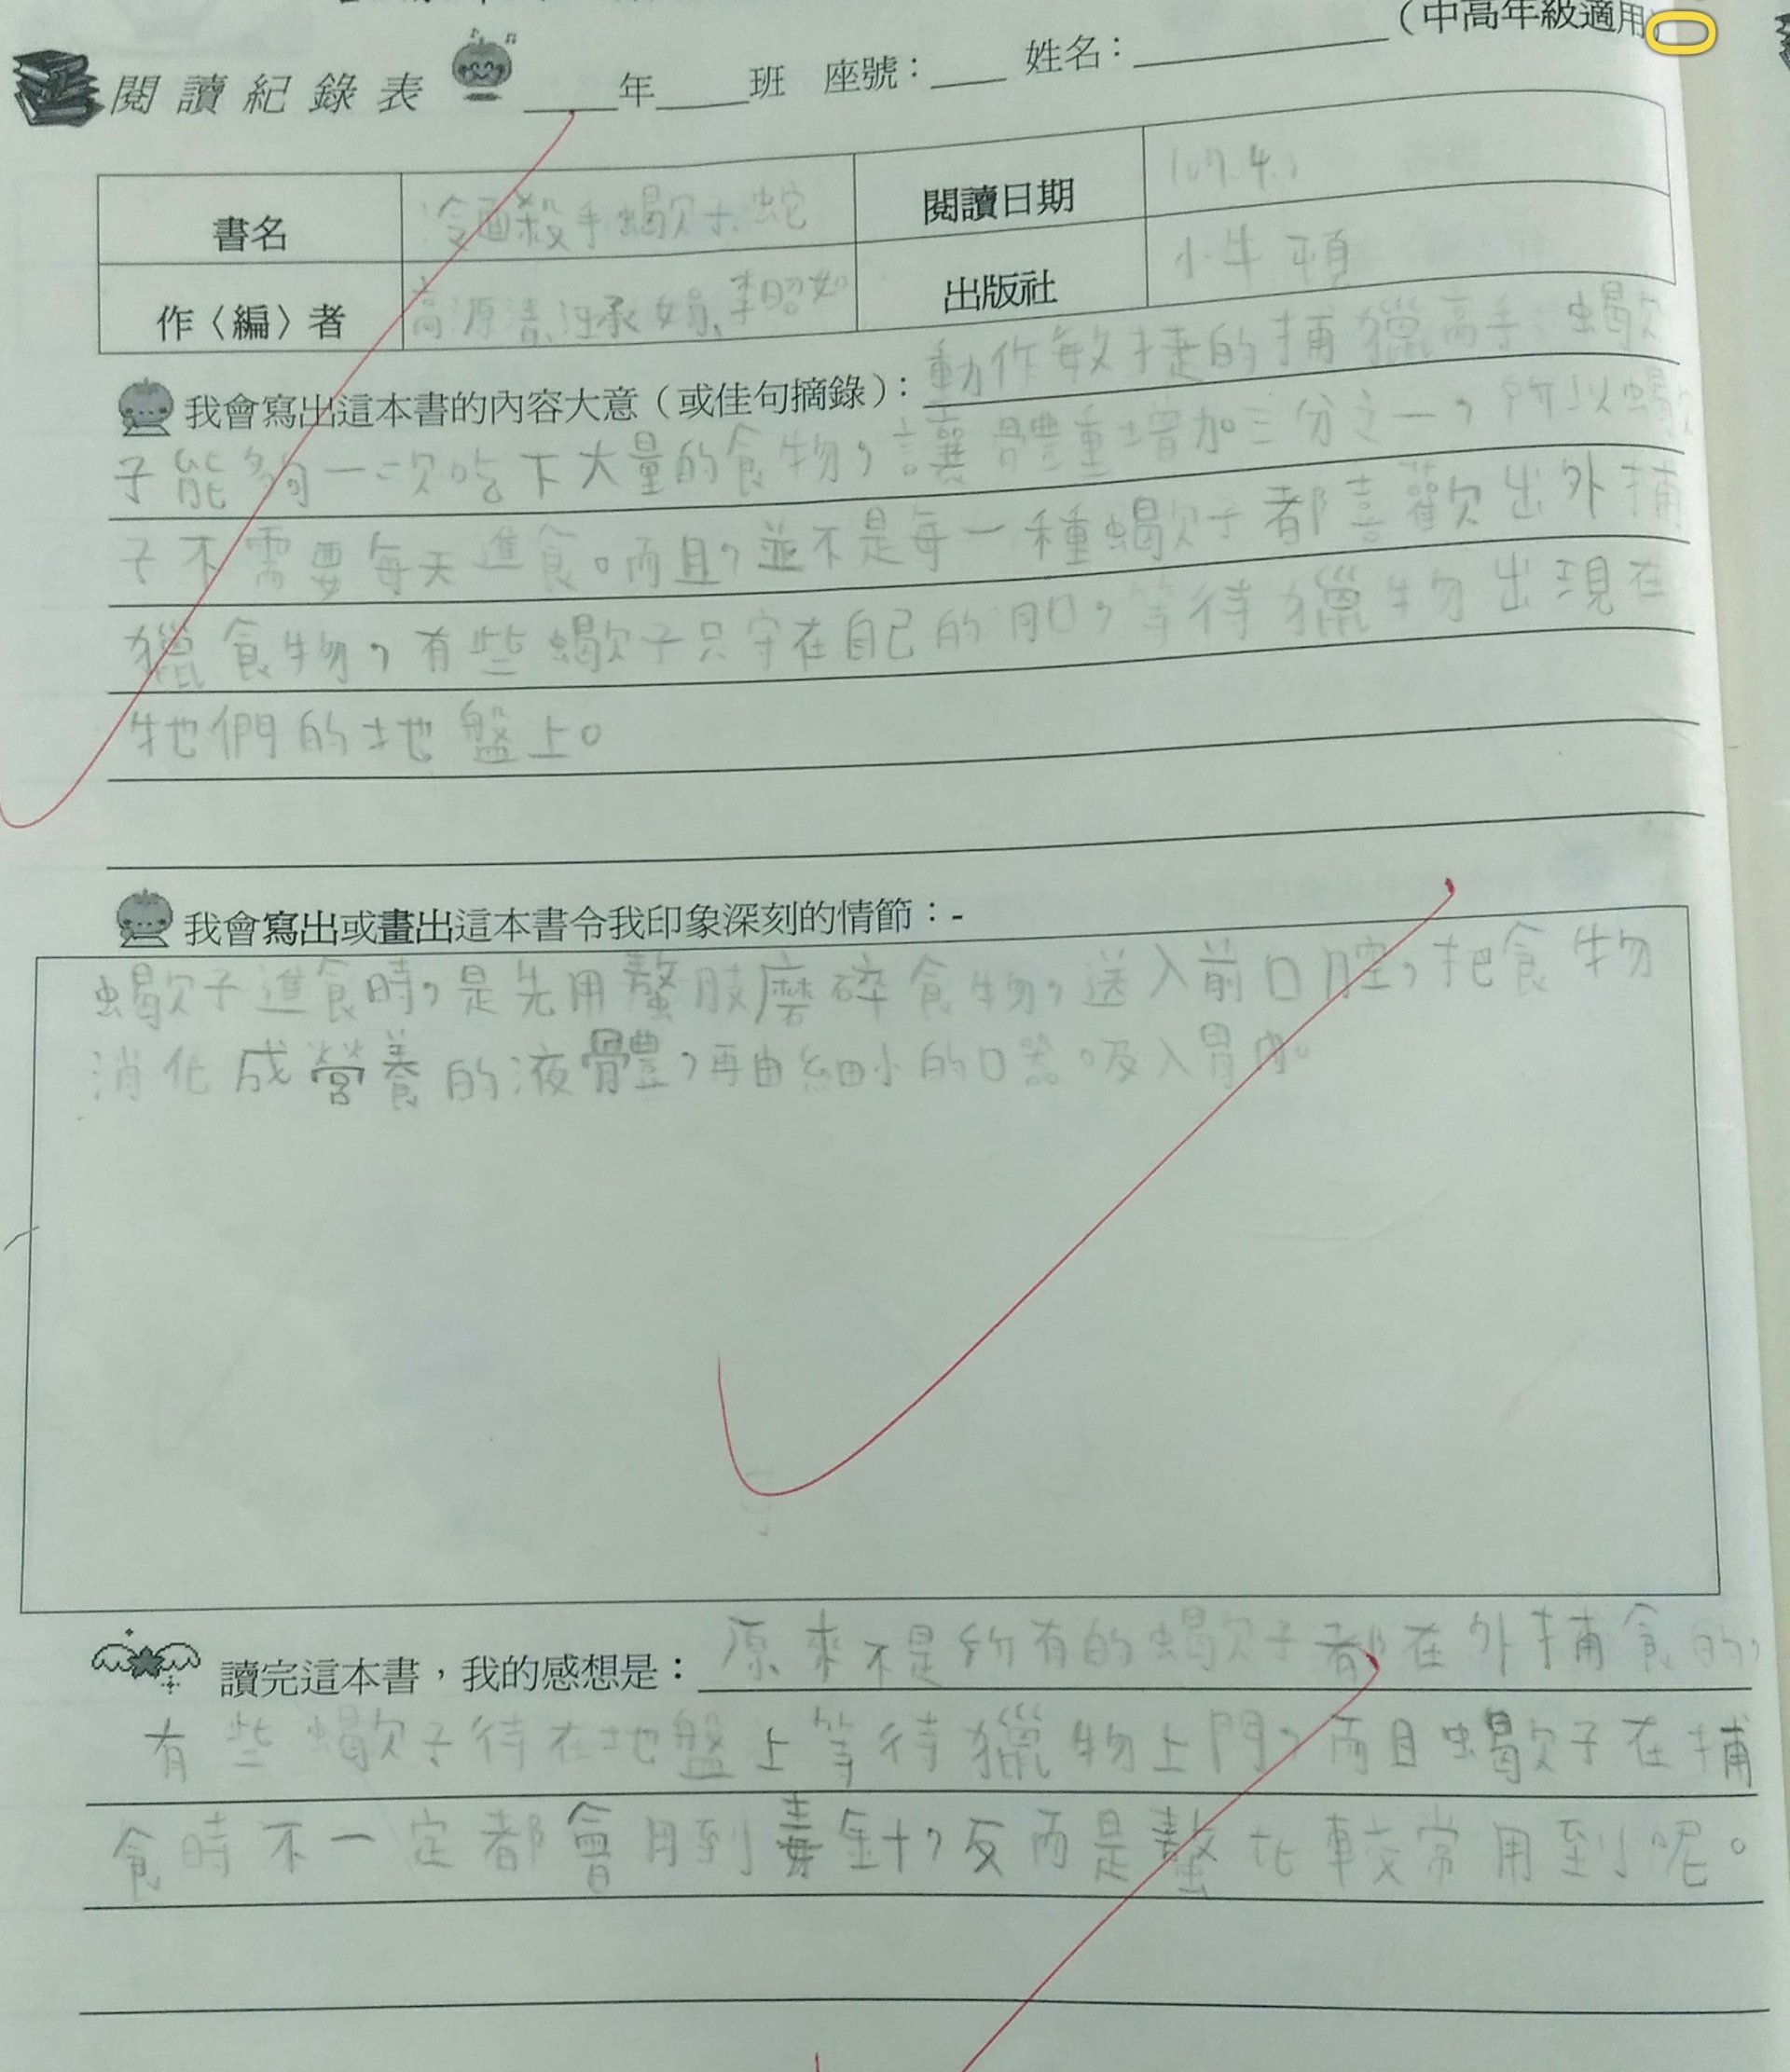 (中高年級適用)
閱讀紀錄表 ____年____班 座號：___ 姓名：__________
書名 冷面殺手蠍子、蛇 閱讀日期 107.4.
作〈編〉者 高源清、汪承娟、李昭如 出版社 小牛頓
我會寫出這本書的內容大意（或佳句摘錄）：動作敏捷的捕獵高手 蠍
子能夠一次吃下大量的食物，讓體重增加三分之一，所以蠍
子不需要每天進食。而且，並不是每一種蠍子都喜歡出外捕
獵食物，有些蠍子只守在自己的 ，等待獵物出現在
牠們的地盤上。
我會寫出或畫出這本書令我印象深刻的情節：-
蠍子進食時，是先用螯肢磨碎食物，送入前口腔，把食物
消化成營養的液體，再由細小的口器吸入胃內。
讀完這本書，我的感想是：原來不是所有的蠍子都在外捕食的，
有些蠍子待在地盤上等待獵物上門，而且蠍子在捕
食時不一定都會用到毒針，反而是螯比較常用到呢。